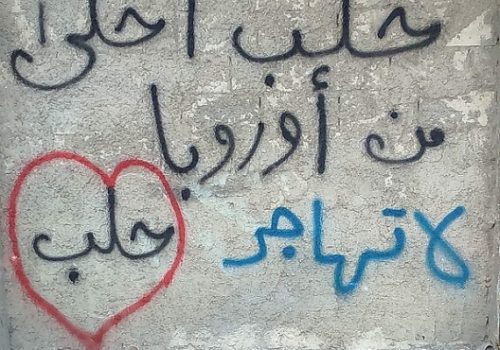 حلب احلى
من أوروبا
لا تهاجر
حلب